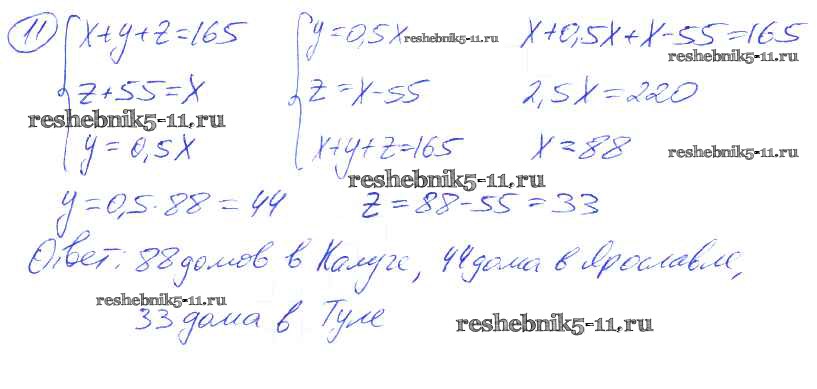 11 x+y+z=165 y=0,5x reshebnik5-11.ru x+0,5x+x-55=165
reshebnik5-11.ru
z+55=x z=x-55 2,5x=220
reshebnik5-11.ru
y=0,5x x+y+z=165 x=88 reshebnik5-11.ru
reshebnik5-11.ru
y=0,5·88=44 z=88-55=33
Ответ: 88 домов в Калуге, 44 дома в Ярославле,
reshebnik5-11.ru
33 дома в Туле reshebnik5-11.ru